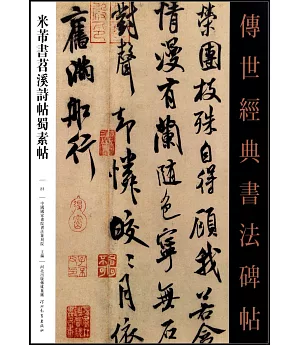 傳世經典書法碑帖
榮團枝殊自得顧我若含
情漫有蘭隨色寧無石
對聲却憐皎〻月依
舊滿船行
米芾書苕溪詩帖蜀素帖